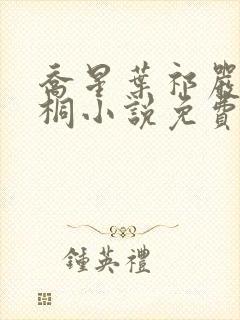 喬星葉祁嚴
桐小說免費
鍾英禮